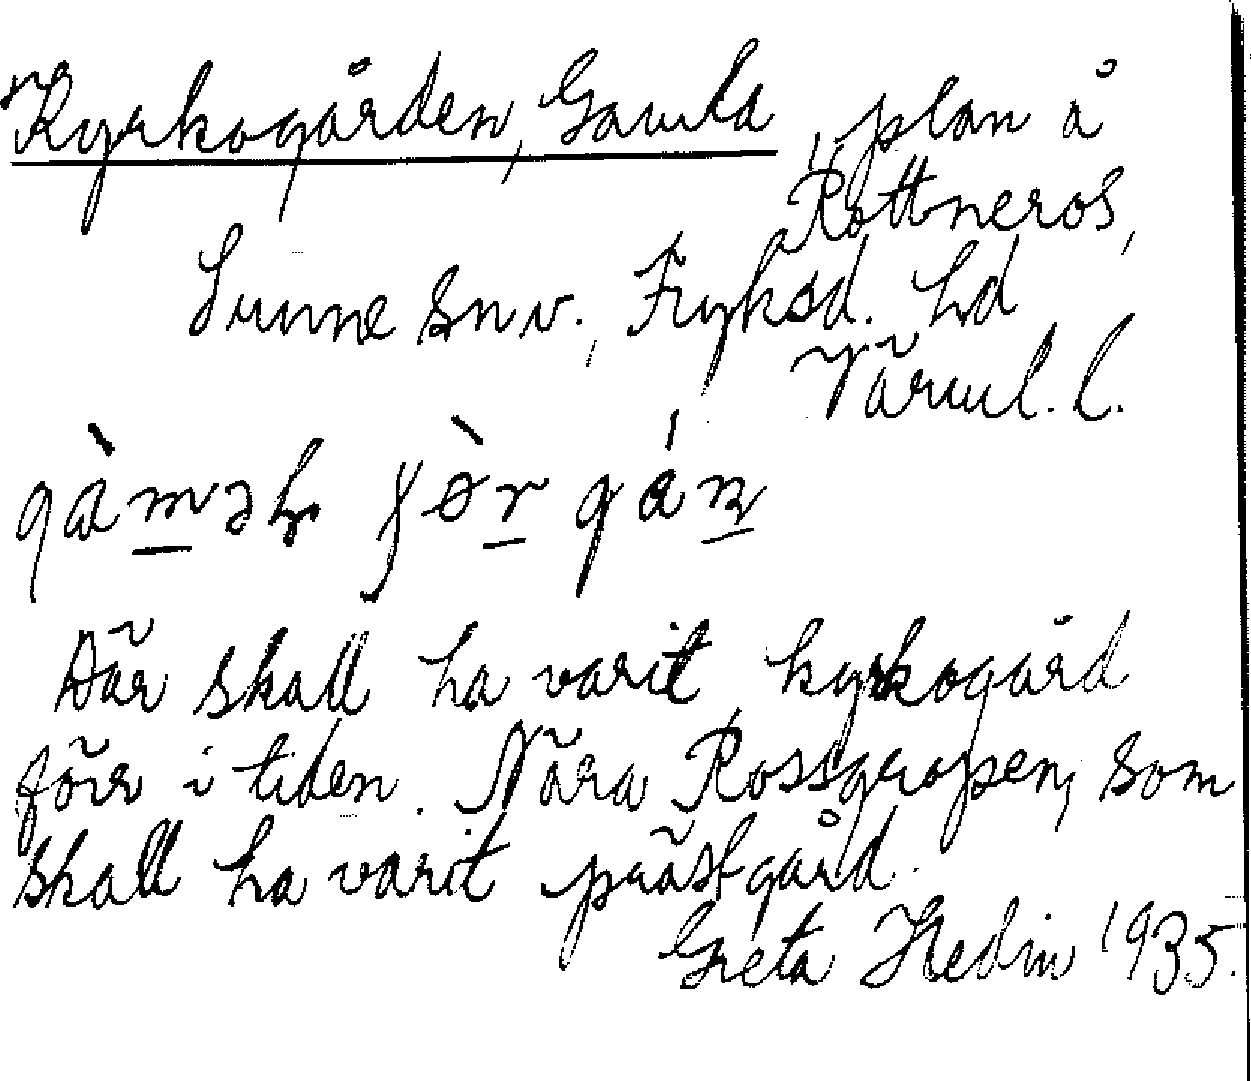 Kyrkogården, Gamla, plan å
Rottneros,
Sunne sn v., Fryksd. hd
Värml. l.
Där skall ha varit kyrkogård
förr i tiden. Nära Rossgropen, som
skall ha varit prästgård.
Greta Hedin 1935.